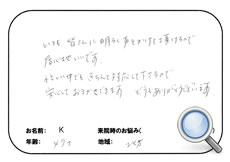 いつも 皆さんに明るく声をかけて頂けるので
居心地いいです。
忙しい中でもきちんと対応して下さるので
安心しておまかせできます。 どうもありがとうございます。
お名前: K 来院時のお悩み(
年齢: 地域: